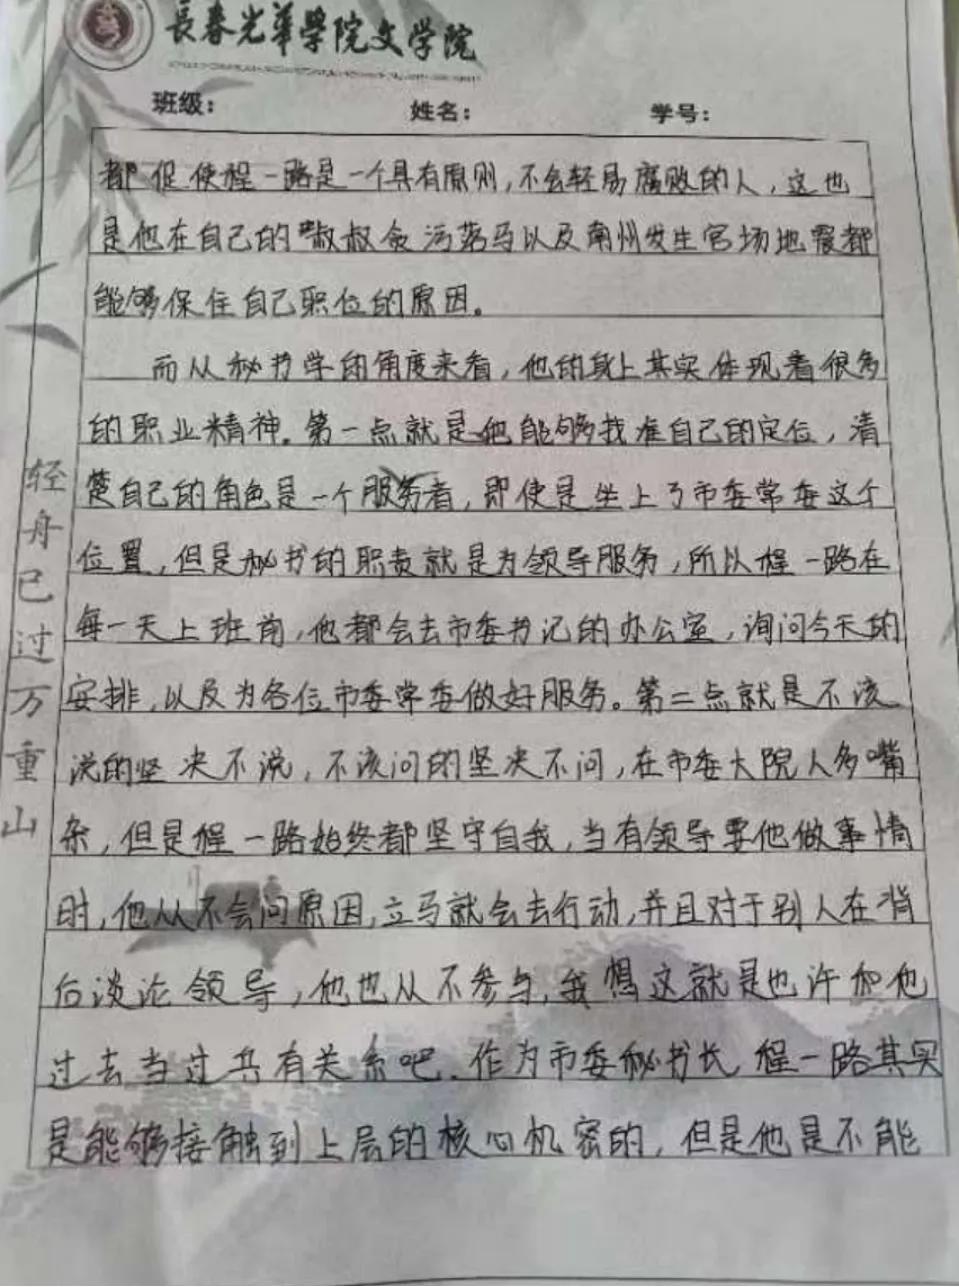 長春光華學院文学院
班级： 姓名： 学号：
都促使程一路是一个具有原则，不会轻易腐败的人，这也
是他在自己的叔叔贪污落马以及南州发生官场地震都
能够保住自己职位的原因。
而从秘书学的角度来看，他的身上其实体现着很多
的职业精神。第一点就是他能够找准自己的定位，清
楚自己的角色是一个服务者，即使是坐上了市委常委这个
位置，但是秘书的职责就是为领导服务，所以程一路在
每一天上班前，他都会去市委书记的办公室，询问今天的
安排，以及为各位市委常委做好服务。第二点就是不该
说的坚决不说，不该问的坚决不问，在市委大院人多嘴
杂，但是程一路始终都坚守自我，当有领导要他做事情
时，他从不会问原因，立马就会去行动，并且对于别人在背
后谈论领导，他也从不参与，我想这就是也许和他
过去当过兵有关系吧。作为市委秘书长，程一路其实
是能够接触到上层的核心机密的，但是他是不能
轻舟已过万重山